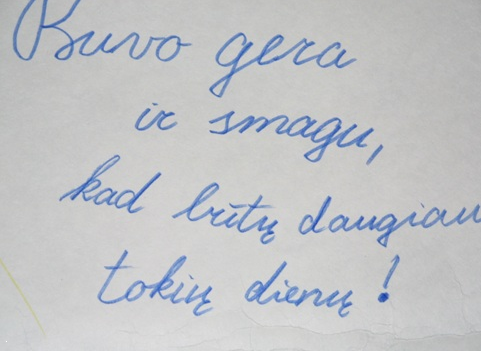 Buvo gera
ir smagu,
kad būtų daugiau
tokių dienų!